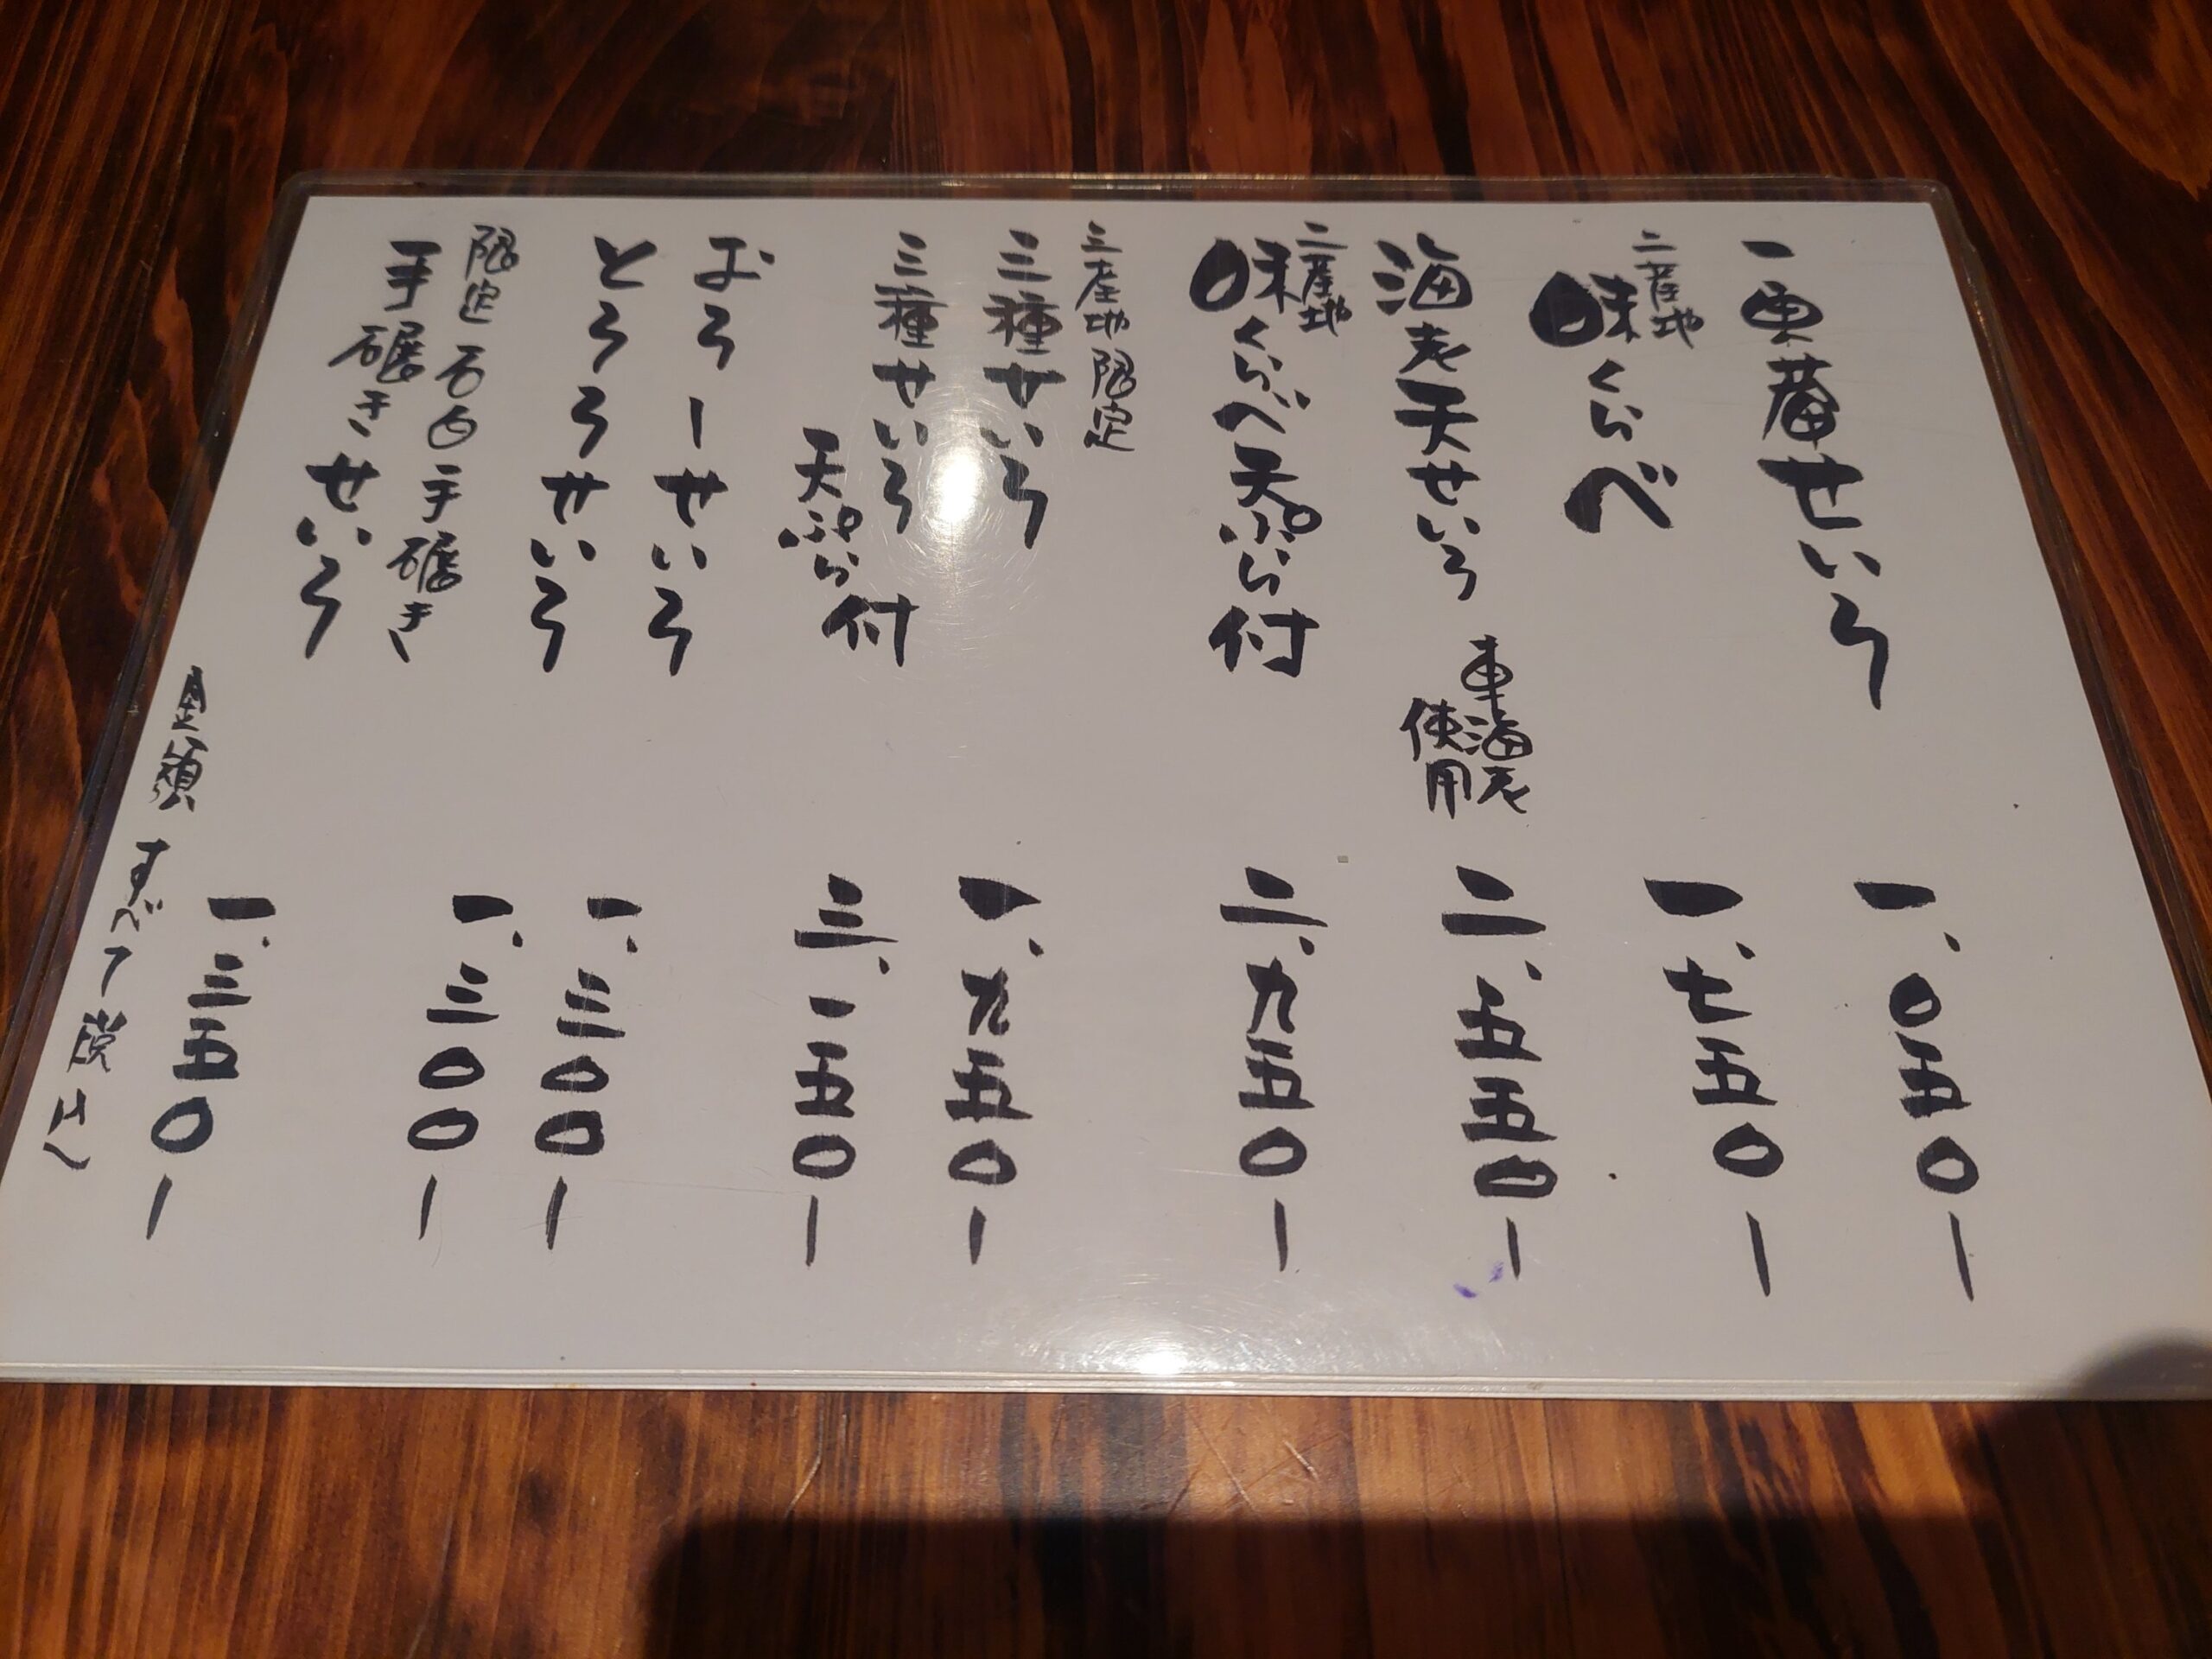 一東菴せいろ 一、〇五〇ー
二産地
味くらべ 一、七五〇ー
海老天せいろ 車海老使用 二、五五〇ー
二産地
味くらべ天ぷら付 二、九五〇ー
三産地限定
三種せいろ 一、九五〇ー
三種せいろ
天ぷら付 三、一五〇ー
おろしせいろ 一、三〇〇ー
とろろせいろ 一、三〇〇ー
限定 石臼手碾き
手碾きせいろ 一、三五〇ー
金額 すべて税込